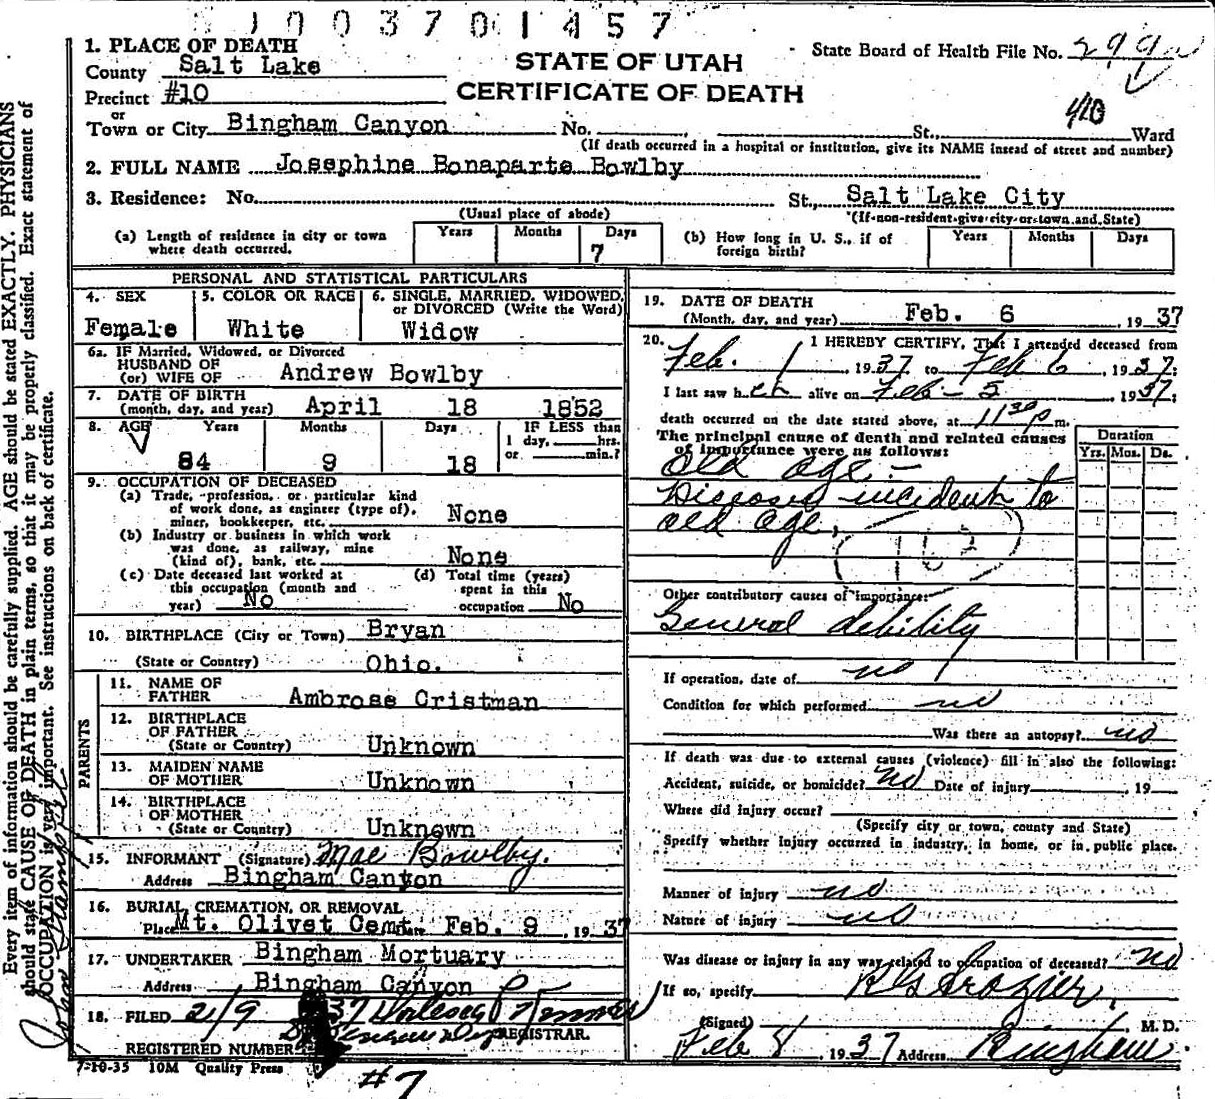 1 0 0 3 7 0 1 4 5 7
1. PLACE OF DEATH
County Salt Lake
Precinct #10
or
Town or City Bingham Canyon No. St. Ward
STATE OF UTAH
CERTIFICATE OF DEATH
State Board of Health File No.
410
(If death occurred in a hospital or institution, give its NAME instead of street and number)
2. FULL NAME Josephine Bonaparte Bowlby
3. Residence: No. St., Salt Lake City
(Usual place of abode) (If non-resident give city or town and State)
(a) Length of residence in city or town where death occurred. Years Months Days 7
(b) How long in U. S., if of foreign birth? Years Months Days
PERSONAL AND STATISTICAL PARTICULARS
4. SEX Female
5. COLOR OR RACE White
6. SINGLE, MARRIED, WIDOWED, or DIVORCED (Write the Word) Widow
6a. IF Married, Widowed, or Divorced
HUSBAND OF
(or) WIFE OF Andrew Bowlby
7. DATE OF BIRTH
(month, day, and year) April 18 1852
8. AGE Years Months Days IF LESS than
84 9 18 1 day, hrs. or min.?
9. OCCUPATION OF DECEASED
(a) Trade, profession, or particular kind
of work done, as engineer (type of),
miner, bookkeeper, etc. None
(b) Industry or business in which work
was done, as railway, mine
(kind of), bank, etc. None
(c) Date deceased last worked at
this occupation (month and
year) No
(d) Total time (years)
spent in this
occupation No
10. BIRTHPLACE (City or Town) Bryan
(State or Country) Ohio.
PARENTS
11. NAME OF
FATHER Ambrose Cristman
12. BIRTHPLACE
OF FATHER
(State or Country) Unknown
13. MAIDEN NAME
OF MOTHER Unknown
14. BIRTHPLACE
OF MOTHER
(State or Country) Unknown
15. INFORMANT (Signature) Mae Bowlby.
Address Bingham Canyon
16. BURIAL, CREMATION, OR REMOVAL
Place Mt. Olivet Cemt. Feb. 9, 1937
17. UNDERTAKER Bingham Mortuary
Address Bingham Canyon
18. FILED 2/9 37
REGISTRAR.
REGISTERED NUMBER
7-10-35 10M Quality Press
#7
19. DATE OF DEATH
(Month, day, and year) Feb. 6, 1937
20. I HEREBY CERTIFY, That I attended deceased from
Feb. 1, 1937 to Feb 6, 1937;
I last saw her alive on Feb - 5 1937;
death occurred on the date stated above, at 11 30 p m.
The principal cause of death and related causes
of importance were as follows: Duration
Yrs. Mos. Ds.
Old age -
Diseases incident to
old age,
(162)
Other contributory causes of importance:
General debility
If operation, date of no
Condition for which performed no
Was there an autopsy? no
If death was due to external causes (violence) fill in also the following:
Accident, suicide, or homicide? no Date of injury , 19
Where did injury occur?
(Specify city or town, county and State)
Specify whether injury occurred in industry, in home, or in public place.
Manner of injury no
Nature of injury no
Was disease or injury in any way related to occupation of deceased? no
If so, specify
(Signed) R G Frazier, M. D.
Feb 8, 1937 Address Bingham
Every item of information should be carefully supplied. AGE should be stated EXACTLY. PHYSICIANS
should state CAUSE OF DEATH in plain terms, so that it may be properly classified. Exact statement of
OCCUPATION is very important. See instructions on back of certificate.